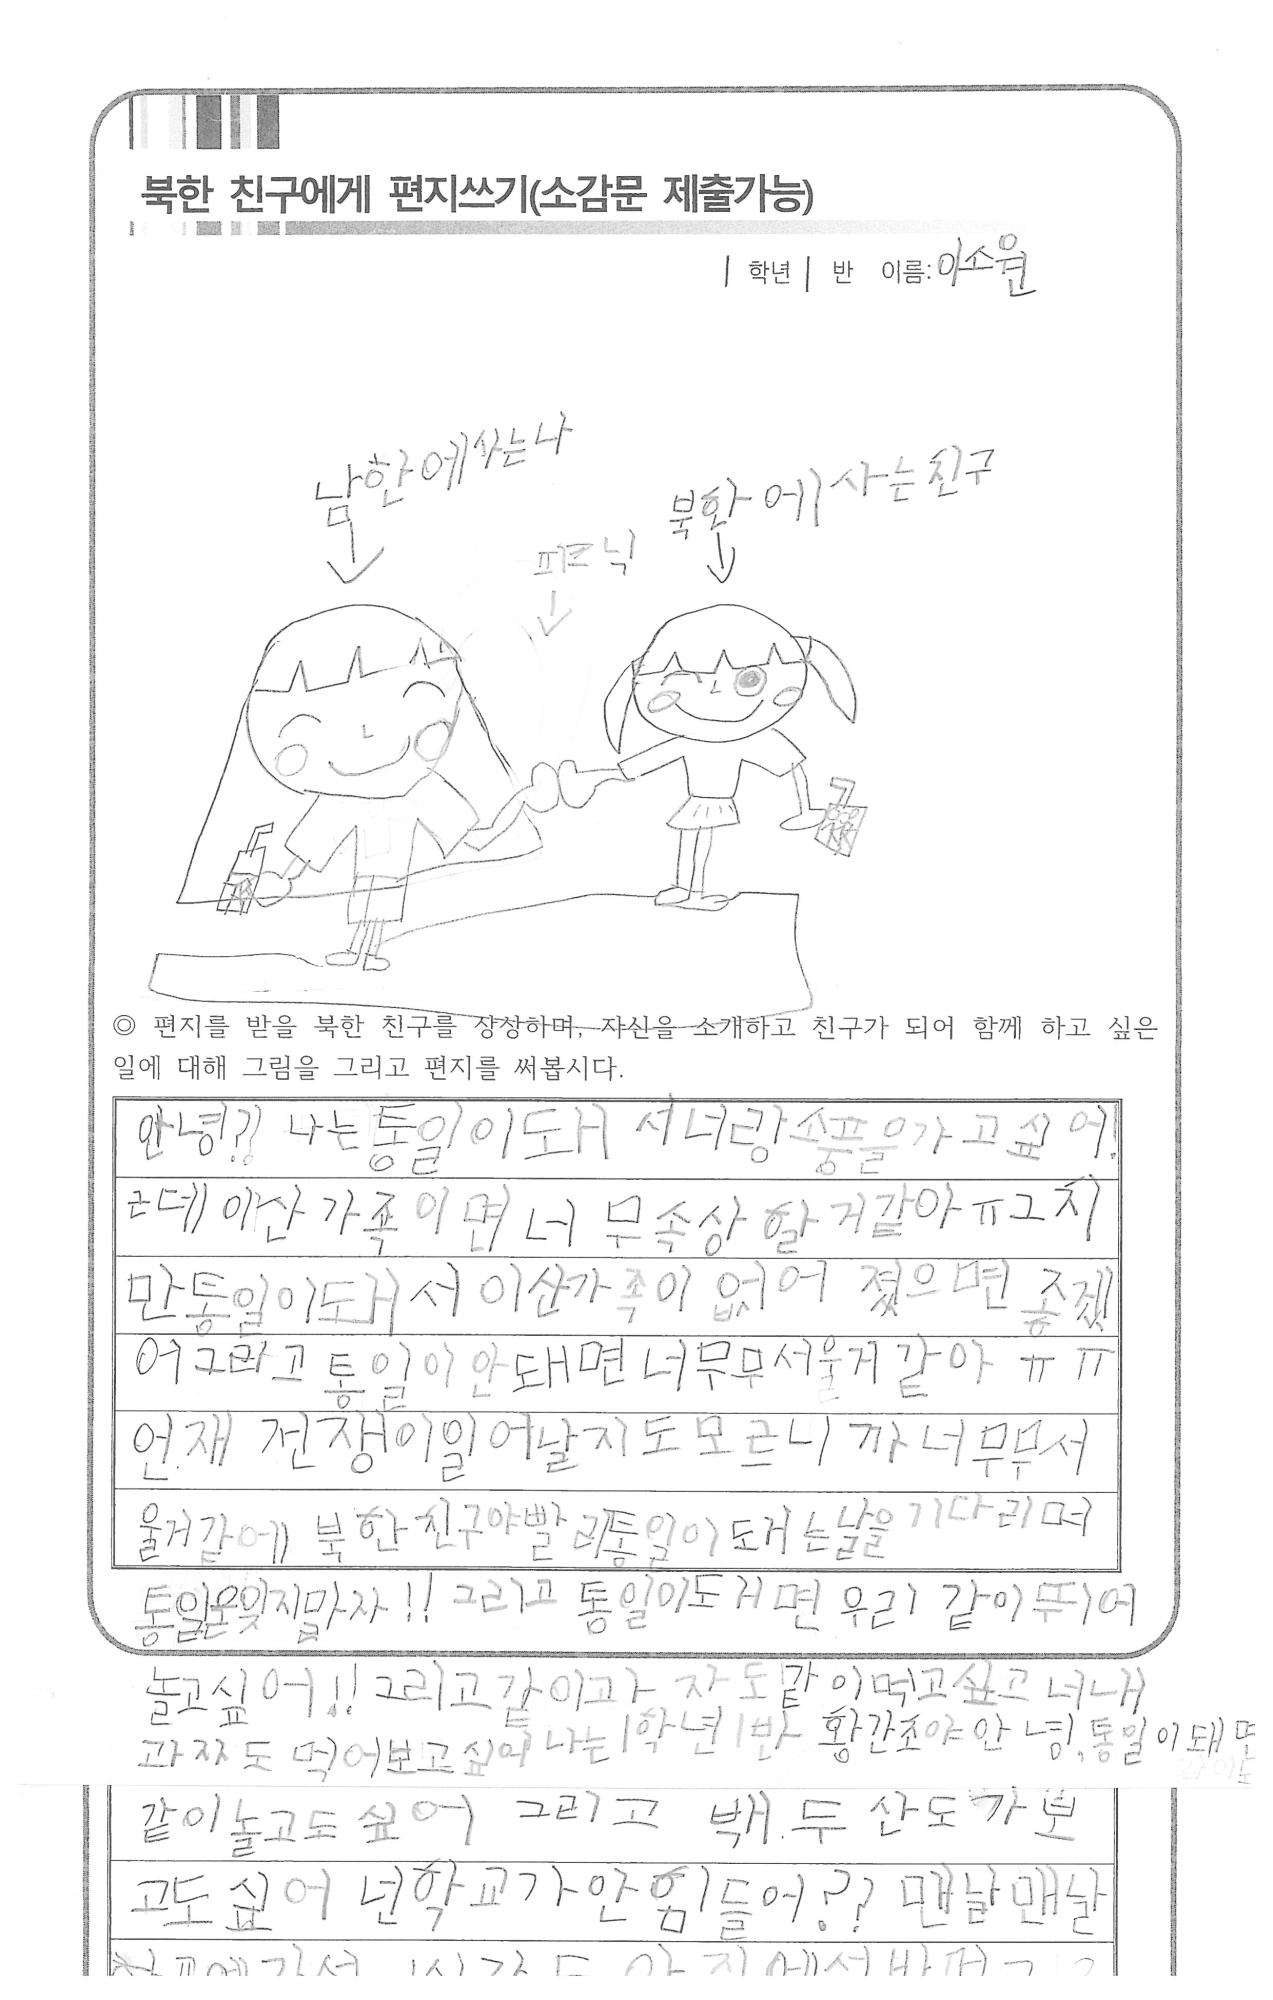 북한 친구에게 편지쓰기(소감문 제출가능)
1 학년 1 반 이름: 이소원
남한에 사는 나
북한에 사는 친구
피크닉
◎ 편지를 받을 북한 친구를 상상하며, 자신을 소개하고 친구가 되어 함께 하고 싶은
일에 대해 그림을 그리고 편지를 써봅시다.
안녕?? 나는 통일이 돼서 너랑 소풍을 가고 싶어!
근데 이산가족이면 너무 속상할 거 같아 ㅠ 그치
만 통일이 돼서 이산가족이 없어 졌으면 좋겠
어 그리고 통일이 안돼면 너무 무서울거 같아 ㅠㅠ
언재 전쟁이 일어날지도 모르니까 너무 무서
울거 같에 북한 친구야 빨리 통일이 돼는 날을 기다리며
통일은 잊지 말자!! 그리고 통일이 돼면 우리 같이 뛰어
놀고 싶어!! 그리고 같이 과자도 같이 먹고 싶고 너내
과자도 먹어보고 싶어 나는 1학년 1반 황간초야 안녕, 통일이 돼 또
같이 놀고도 싶어 그리고 백두산도 가보
고도 싶어 넌 학교가 안 힘들어?? 맨날맨날